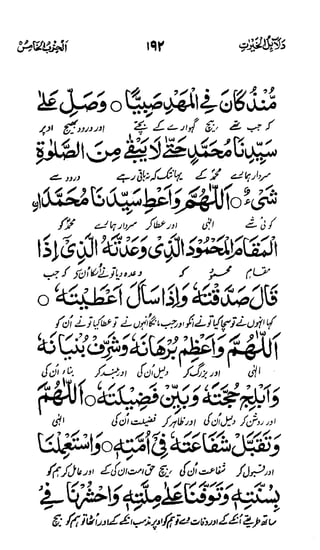 دلائل الخیرات ۱۹۲ الحزب الخامس
مُنْذُ كَانَ فِي الْمَهْدِ صَبِيًّا ○ وَصَلِّ عَلٰى
کو جب تھے بیچ گہوارے کے بچے اور درود بھیج اوپر
سَيِّدِنَا مُحَمَّدٍ حَتّٰى لَا يَبْقٰى مِنَ الصَّلٰوةِ
سردار ہمارے محمد کے یہانتک کہ باقی نہ رہے درود سے
شَيْءٌ ○ اَللّٰهُمَّ وَاَعْطِ سَيِّدَنَا مُحَمَّدَ اِنِ
کوئی شے الٰہی اور عطا کر سردار ہمارے محمد کو
الْمَقَامَ الْمَحْمُوْدَ الَّذِيْ وَعَدْتَّهُ الَّذِيْ اِذَا
مقام محمود کو وعدہ دیا تو نے اُنکو ان کو کہ جب
قَالَ صَدَّقْتَهٗ وَاِذَا سَاَلَ اَعْطَيْتَهٗ ○
کہا انہوں نے تو سچا کیا تو نے انکو اور جب مانگا انہوں نے تو عطا کیا تو نے اُن کو
اَللّٰهُمَّ وَاَعْظِمْ بُرْهَانَهٗ وَشَرِّفْ بُنْيَانَهٗ
الٰہی اور بزرگ کر دلیل اُن کی اور بلند کر بناء اُن کی
وَاَبْلِجْ حُجَّتَهٗ وَبَيِّنْ فَضِيْلَتَهٗ ○ اَللّٰهُمَّ
اور روشن کر دلیل اُن کی اور ظاہر کر فضیلت اُن کی الٰہی
وَتَقَبَّلْ شَفَاعَتَهٗ فِيْ اُمَّتِهٖ ○ وَاسْتَعْمِلْنَا
اور قبول کر شفاعت اُن کی بیچ حق امت ان کی کے اور عامل کر ہم کو
بِسُنَّتِهٖ وَتَوَفَّنَا عَلٰى مِلَّتِهٖ وَاحْشُرْنَا فِيْ
ساتھ طریقے اُنکے کے اور وفات دے تو ہم کو اوپر مذہب انکے کے اور اٹھا تو ہم کو بیچ